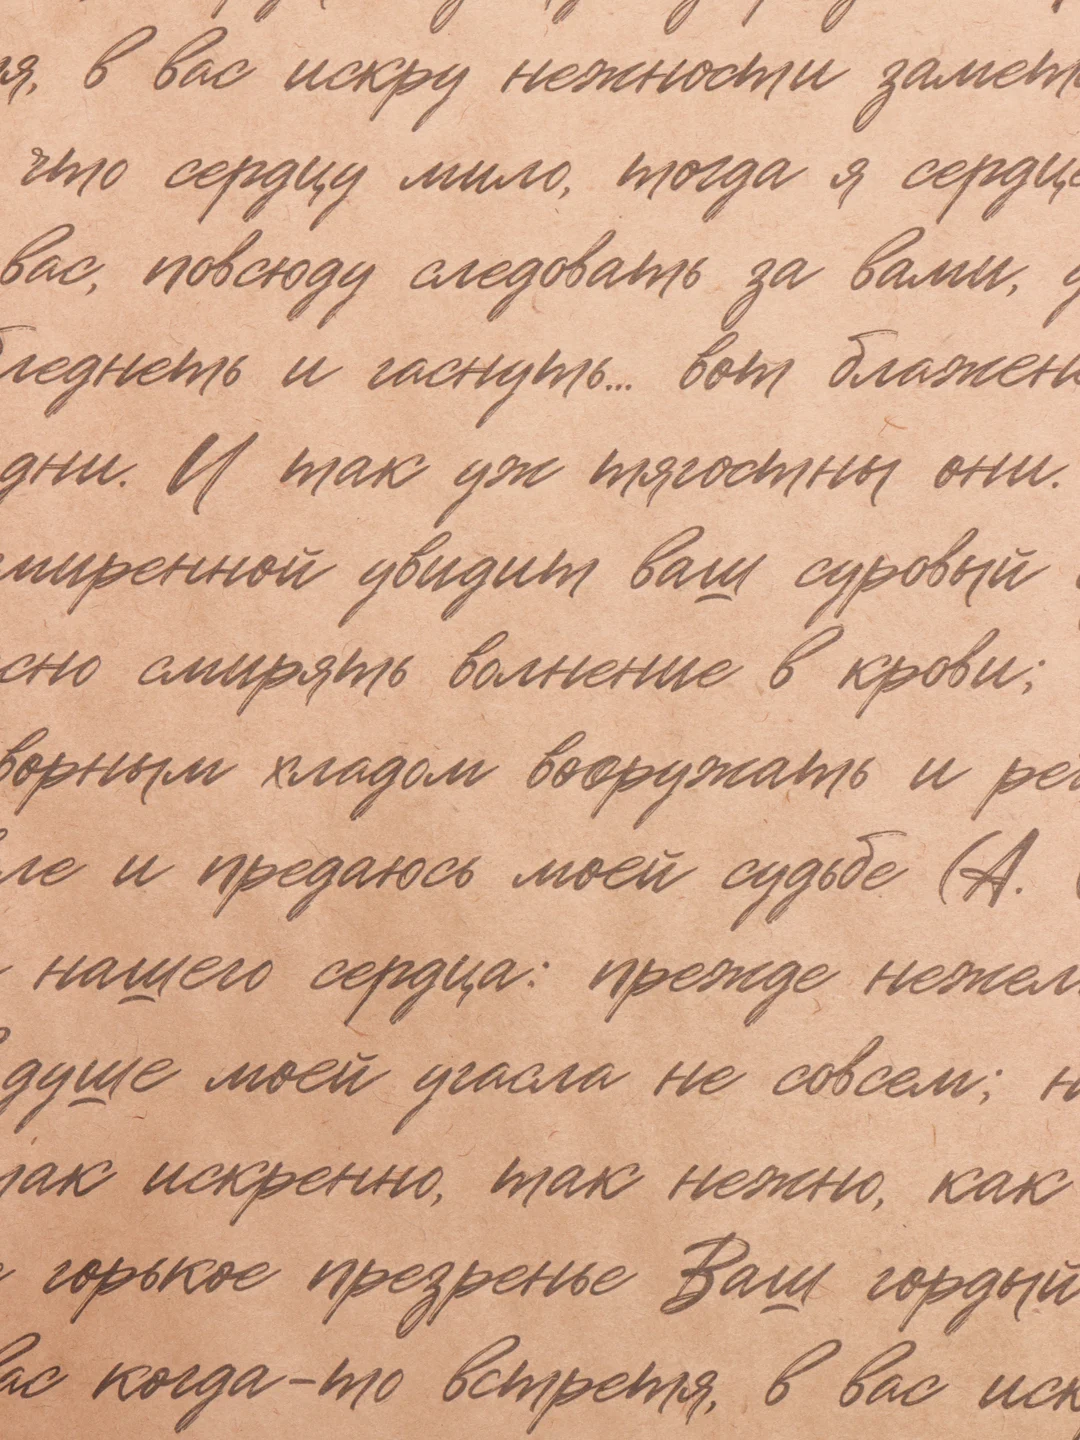 в вас искру нежности
что сердцу мило, тогда я
вас, повсюду следовать за вами,
бледнеть и гаснуть... вот
дни. И так уж тягостны они.
увидит ваш суровый
смирять волнение в крови;
хладом вооружать и
и предаюсь моей судьбе (А.
нашего сердца: прежде
душе моей угасла не совсем;
так искренно, так нежно, как
горькое презренье Ваш гордый
вас когда-то встретя, в вас